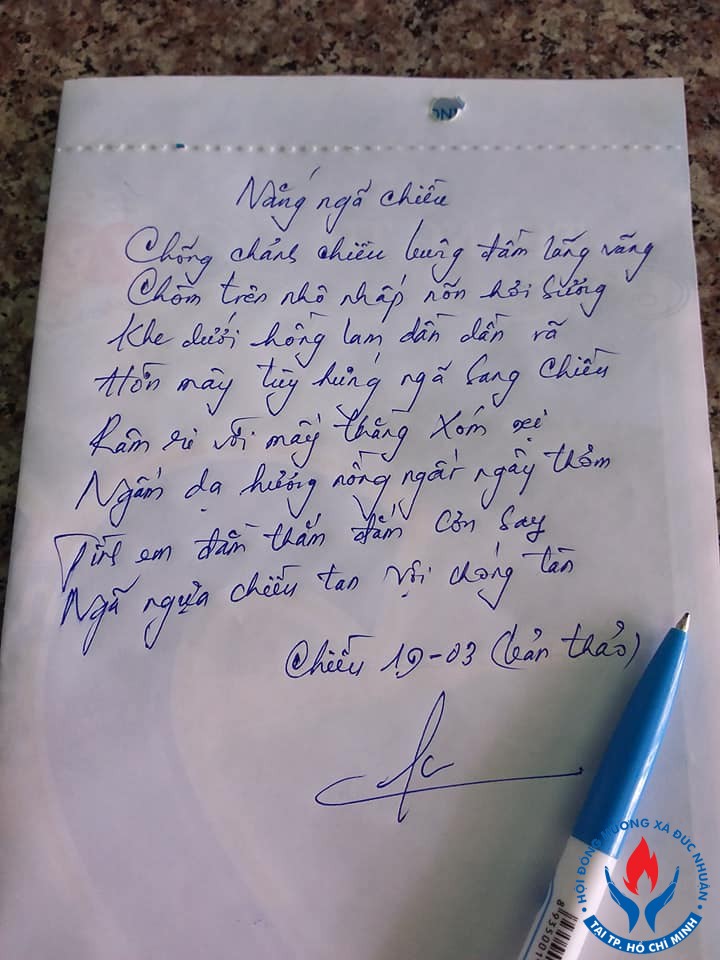 Nắng ngã chiều
Chổng chảnh chiều buông đẫm lãng vãng
Chồm trên nhô nhấp nõn hơi sương
Khe dưới hồng lam dần dần rã
Hồn mây tùy hứng ngã sang chiều
Râm rì với mấy thằng xóm xẻ
Ngấm dạ hương nồng ngất ngây thơm
Tình em đằm thắm đắm cơn say
Ngã ngựa chiều tan vội chóng tàn
Chiều 19-03 (bản thảo)
HỘI ĐỒNG HƯƠNG XÃ ĐỨC NHUẬN
TẠI TP. HỒ CHÍ MINH